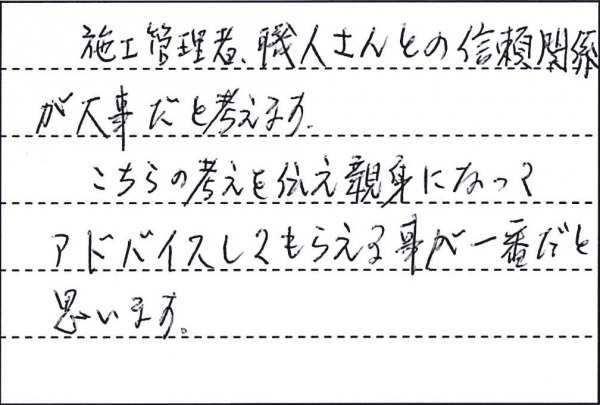 施工管理者、職人さんとの信頼関係
が大事だと考えます。
こちらの考えを伝え親身になって
アドバイスしてもらえる事が一番だと
思います。